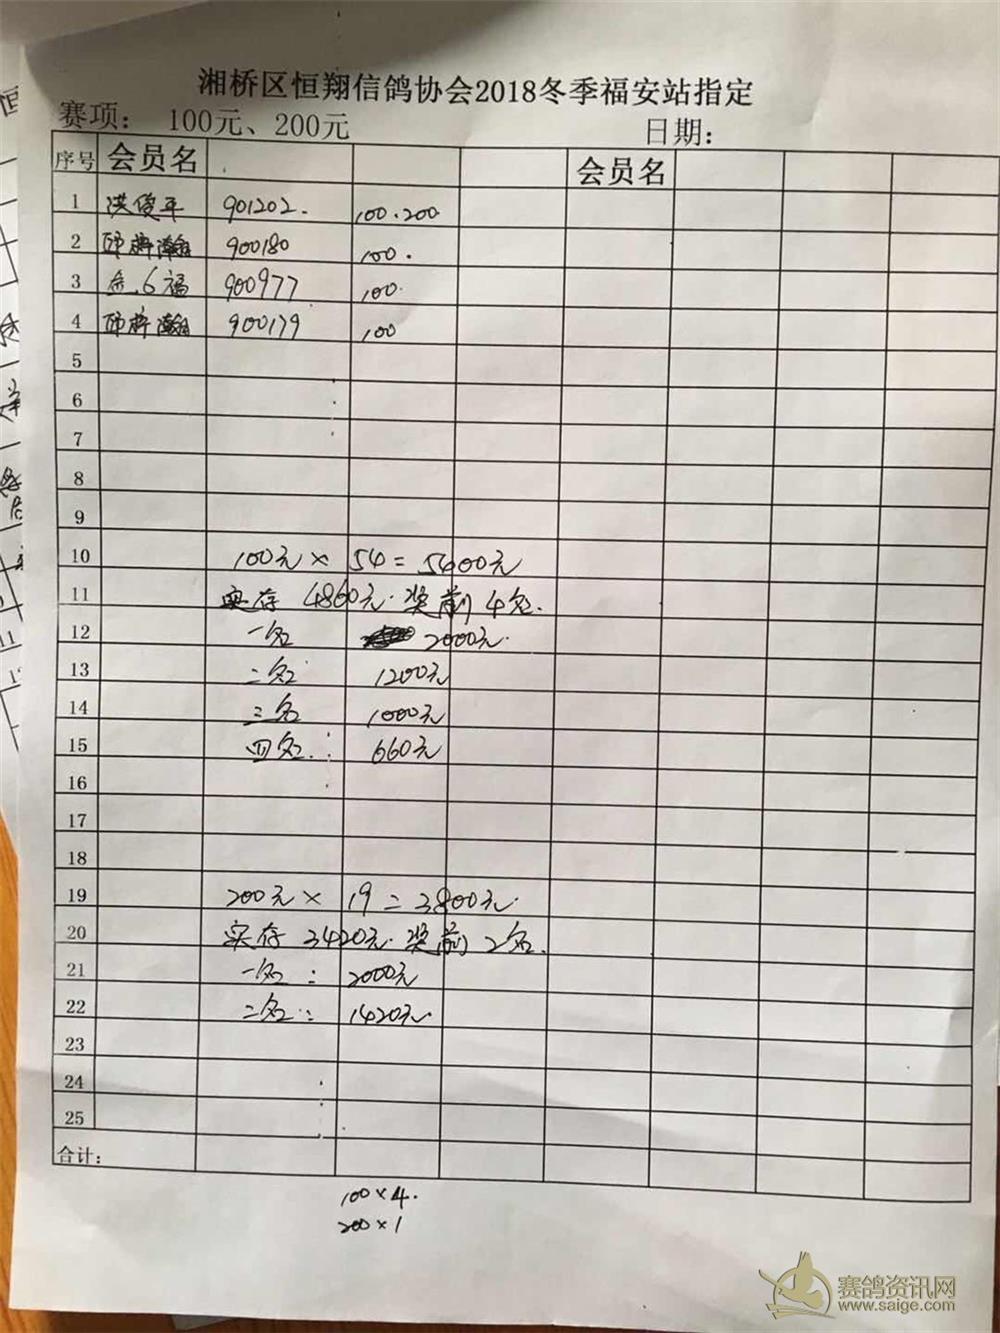 湘桥区恒翔信鸽协会2018冬季福安站指定
赛项： 100元、200元 日期：
序号 会员名 会员名
1 洪俊平 901202. 100.200
2 900180 100.
3 金.6福 900977 100.
4 900179 100
5
6
7
8
9
10 100元 × 54 = 5400元
11 实存 4860元.奖前4名.
12 一名 2000元.
13 二名 1200元
14 三名 1000元
15 四名: 660元
16
17
18
19 200元 × 19 = 3800元.
20 实存 3420元.奖前2名.
21 一名: 2000元
22 二名: 1420元.
23
24
25
合计：
100×4.
200×1
赛鸽资讯网
www.saige.com